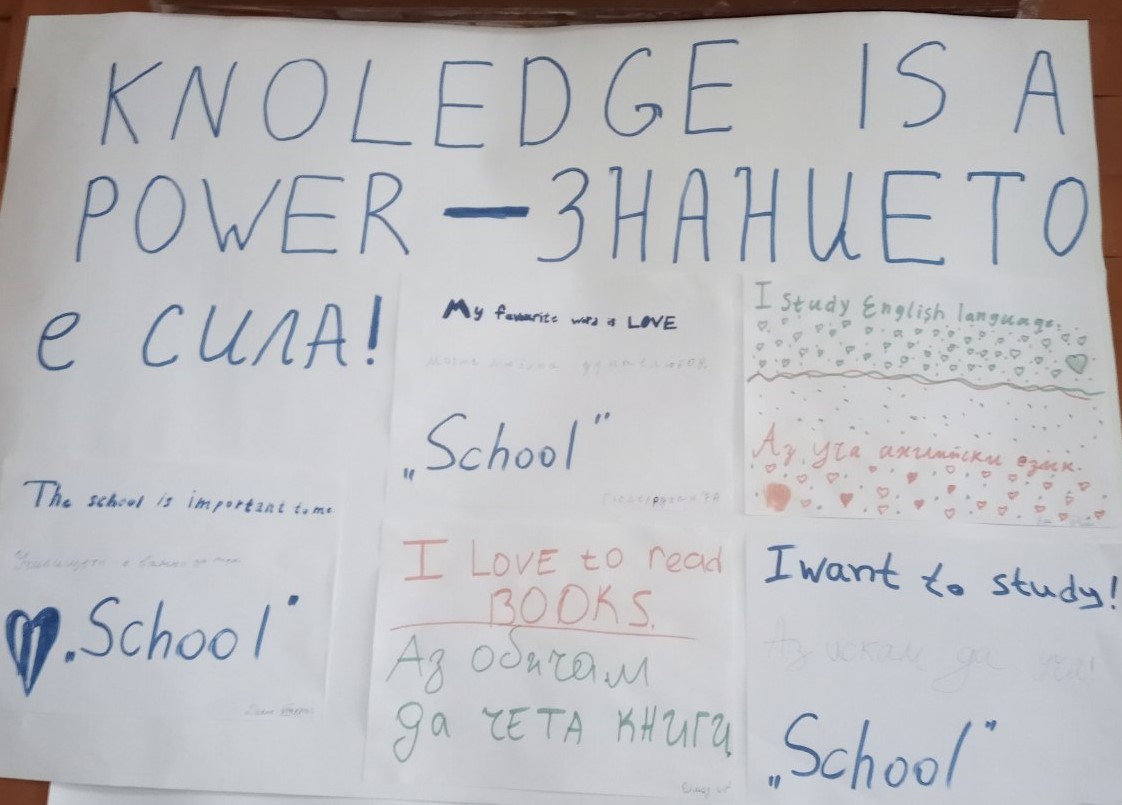 KNOLEDGE IS A
POWER — ЗНАНИЕТО
е СИЛА!
My favourite word is LOVE
„School”
I study English language.
Аз уча английски език.
The school is important to me
Училището е важно за мен
„School”
I LOVE to read
BOOKS.
Аз обичам
да ЧЕТА КНИГИ
I want to study!
Аз искам да уча!
„School”